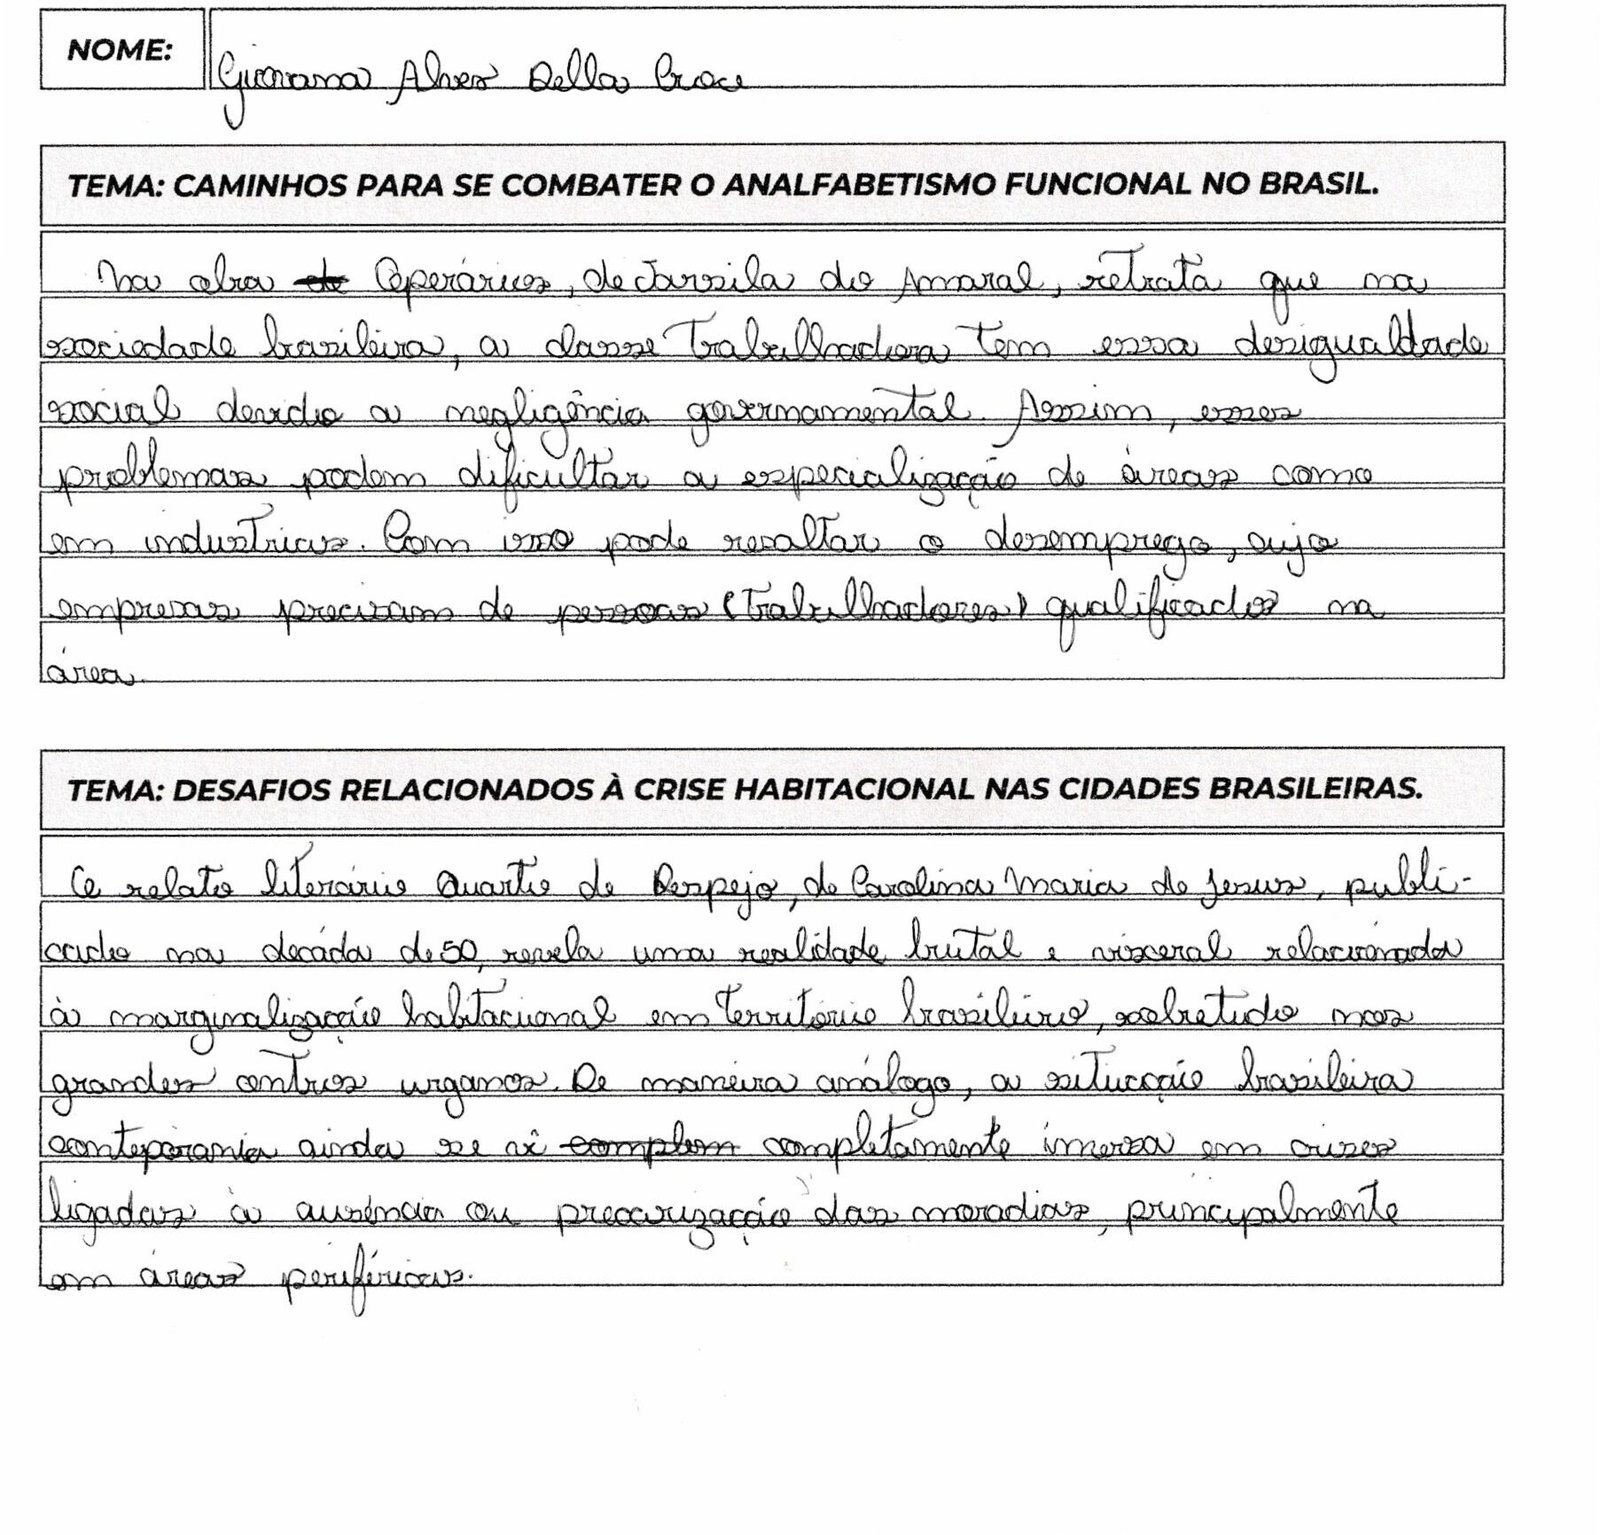 NOME: Giovana Alves Della Croce
TEMA: CAMINHOS PARA SE COMBATER O ANALFABETISMO FUNCIONAL NO BRASIL.
Na obra de Operários, de Tarsila do Amaral, retrata que na
sociedade brasileira, a classe trabalhadora tem essa desigualdade
social devido a negligência governamental. Assim, esses
problemas podem dificultar a especialização de áreas como
em industrias. Com isso pode resaltar o desemprego, cujo
empresas precisam de pessoas (trabalhadores) qualificados na
área.
TEMA: DESAFIOS RELACIONADOS À CRISE HABITACIONAL NAS CIDADES BRASILEIRAS.
O relato literário Quarto de Despejo, de Carolina Maria de Jesus, publi-
cado na decáda de 50, revela uma realidade brutal e visceral relacionada
à marginalização habitacional em território brasileiro, sobretudo nos
grandes centros urganos. De maneira análoga, a situação brasileira
conteporania ainda se vê complem completamente imersa em crises
ligadas à ausência ou precarização das moradias, principalmente
em áreas periféricas.